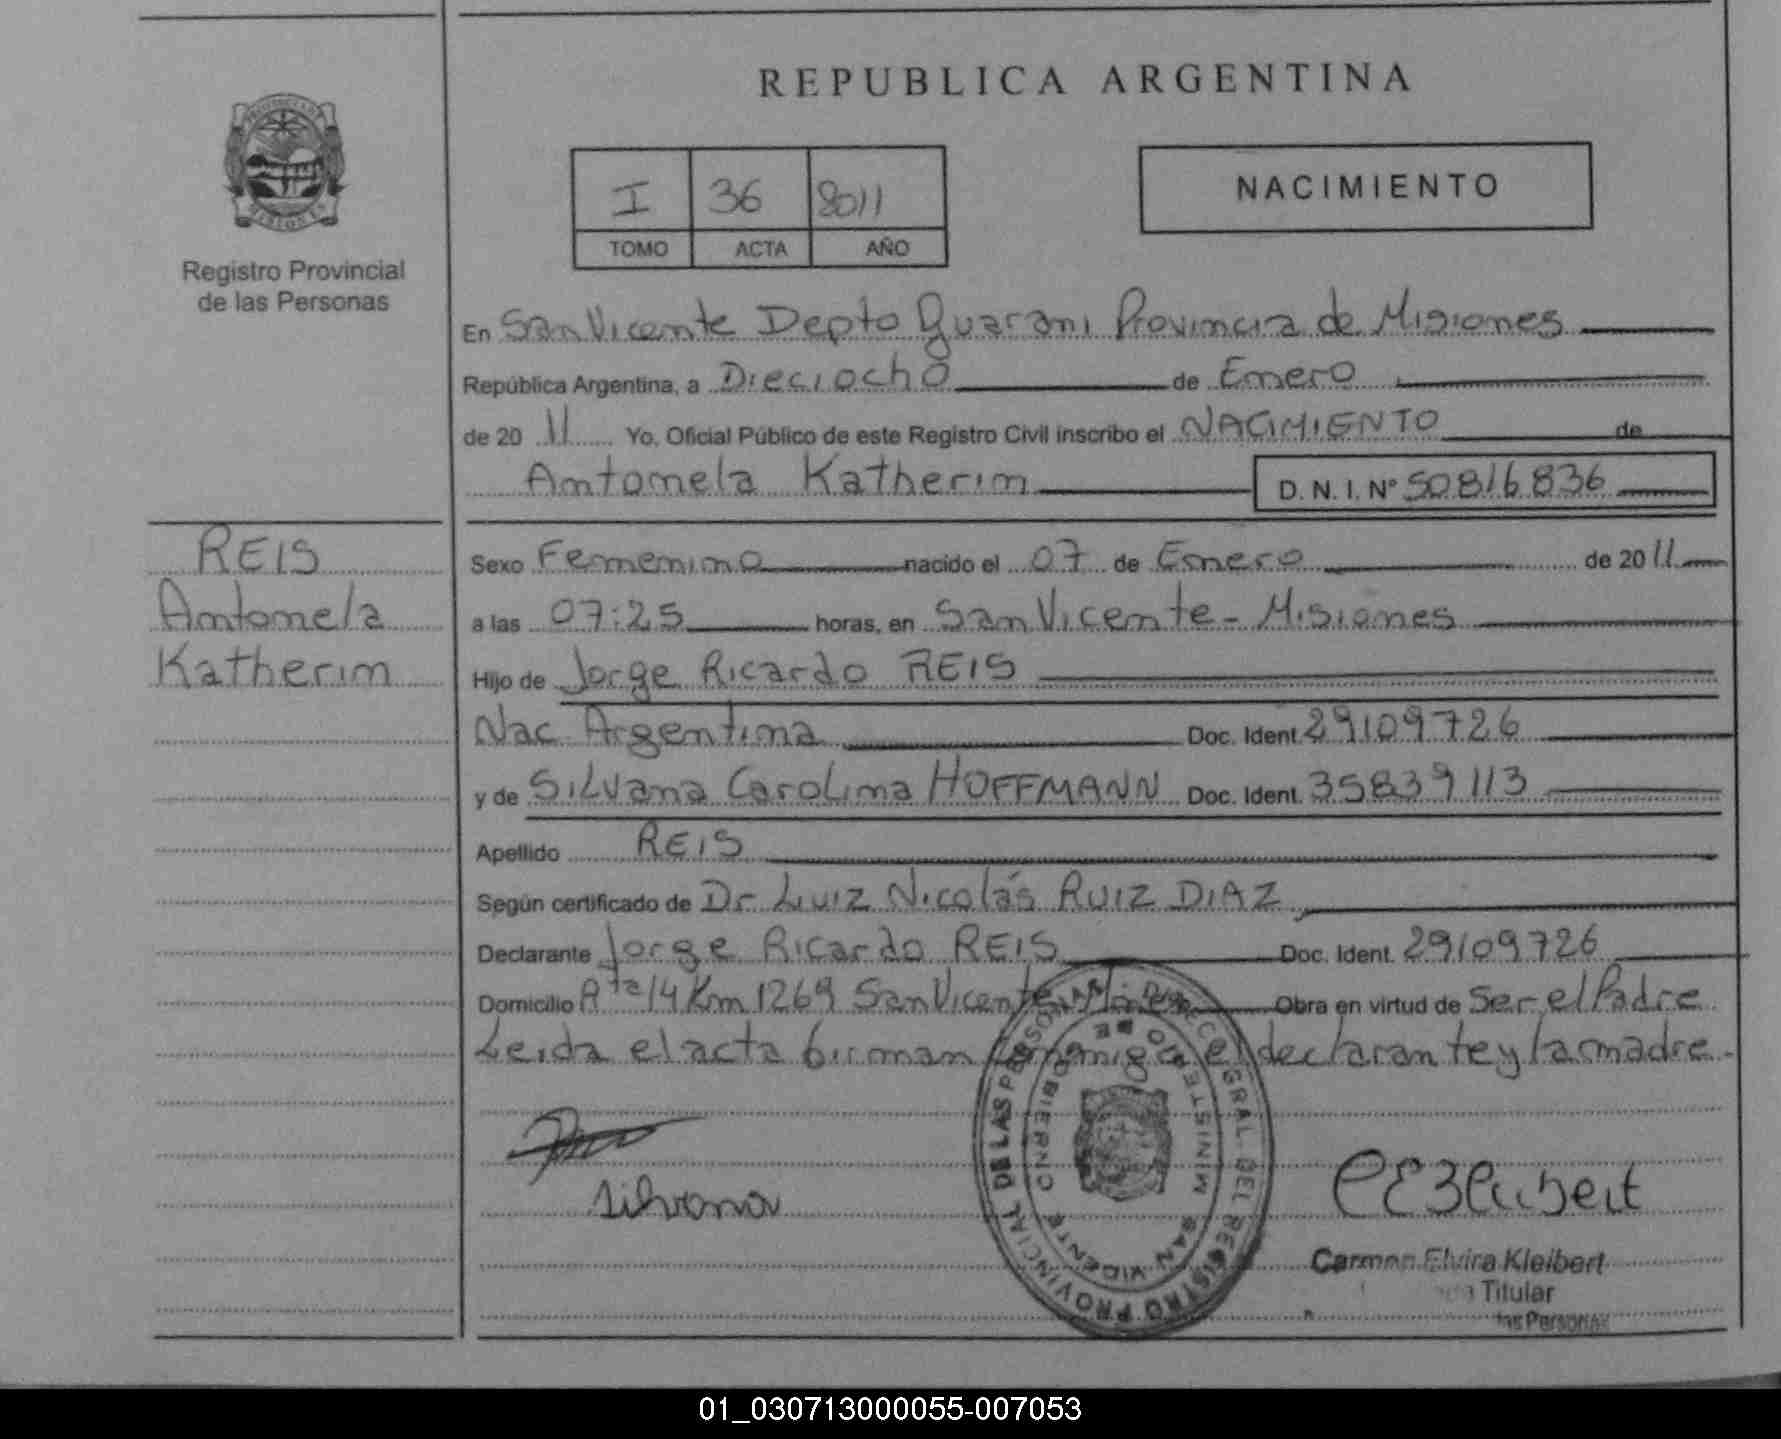 REPUBLICA ARGENTINA
I 36 2011
TOMO ACTA AÑO
NACIMIENTO
Registro Provincial
de las Personas
En San Vicente Depto Guarani Provincia de Misiones
República Argentina, a Dieciocho de Enero
de 20 11 Yo, Oficial Público de este Registro Civil inscribo el NACIMIENTO de
Antonela Katherin D. N. I. Nº 50816836
REIS
Antonela
Katherin
Sexo Femenino nacido el 07 de Enero de 20 11
a las 07:25 horas, en San Vicente - Misiones
Hijo de Jorge Ricardo REIS
Nac. Argentina Doc. Ident. 29109726
y de Silvana Carolina HOFFMANN Doc. Ident. 35839113
Apellido REIS
Según certificado de Dr Luiz Nicolás RUIZ DIAZ
Declarante Jorge Ricardo REIS Doc. Ident. 29109726
Domicilio Rta 14 Km 1269 San Vicente Mnes Obra en virtud de Ser el Padre
Leida el acta firman conmigo el declarante y la madre.
Silvana
CEKleibert
Carmen Elvira Kleibert
Titular
las Personas
DIR. GRAL. DEL REGISTRO PROVINCIAL DE LAS PERSONAS
MINISTERIO DE GOBIERNO
SAN VICENTE
01_030713000055-007053